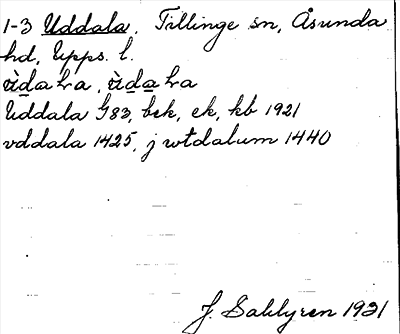 1-3 Uddala, Tillinge sn, Åsunda
hd, Upps. l.
Uddala G83, bek, ek, kb 1921
vddala 1425, j wtdalum 1440
J. Sahlgren 1931